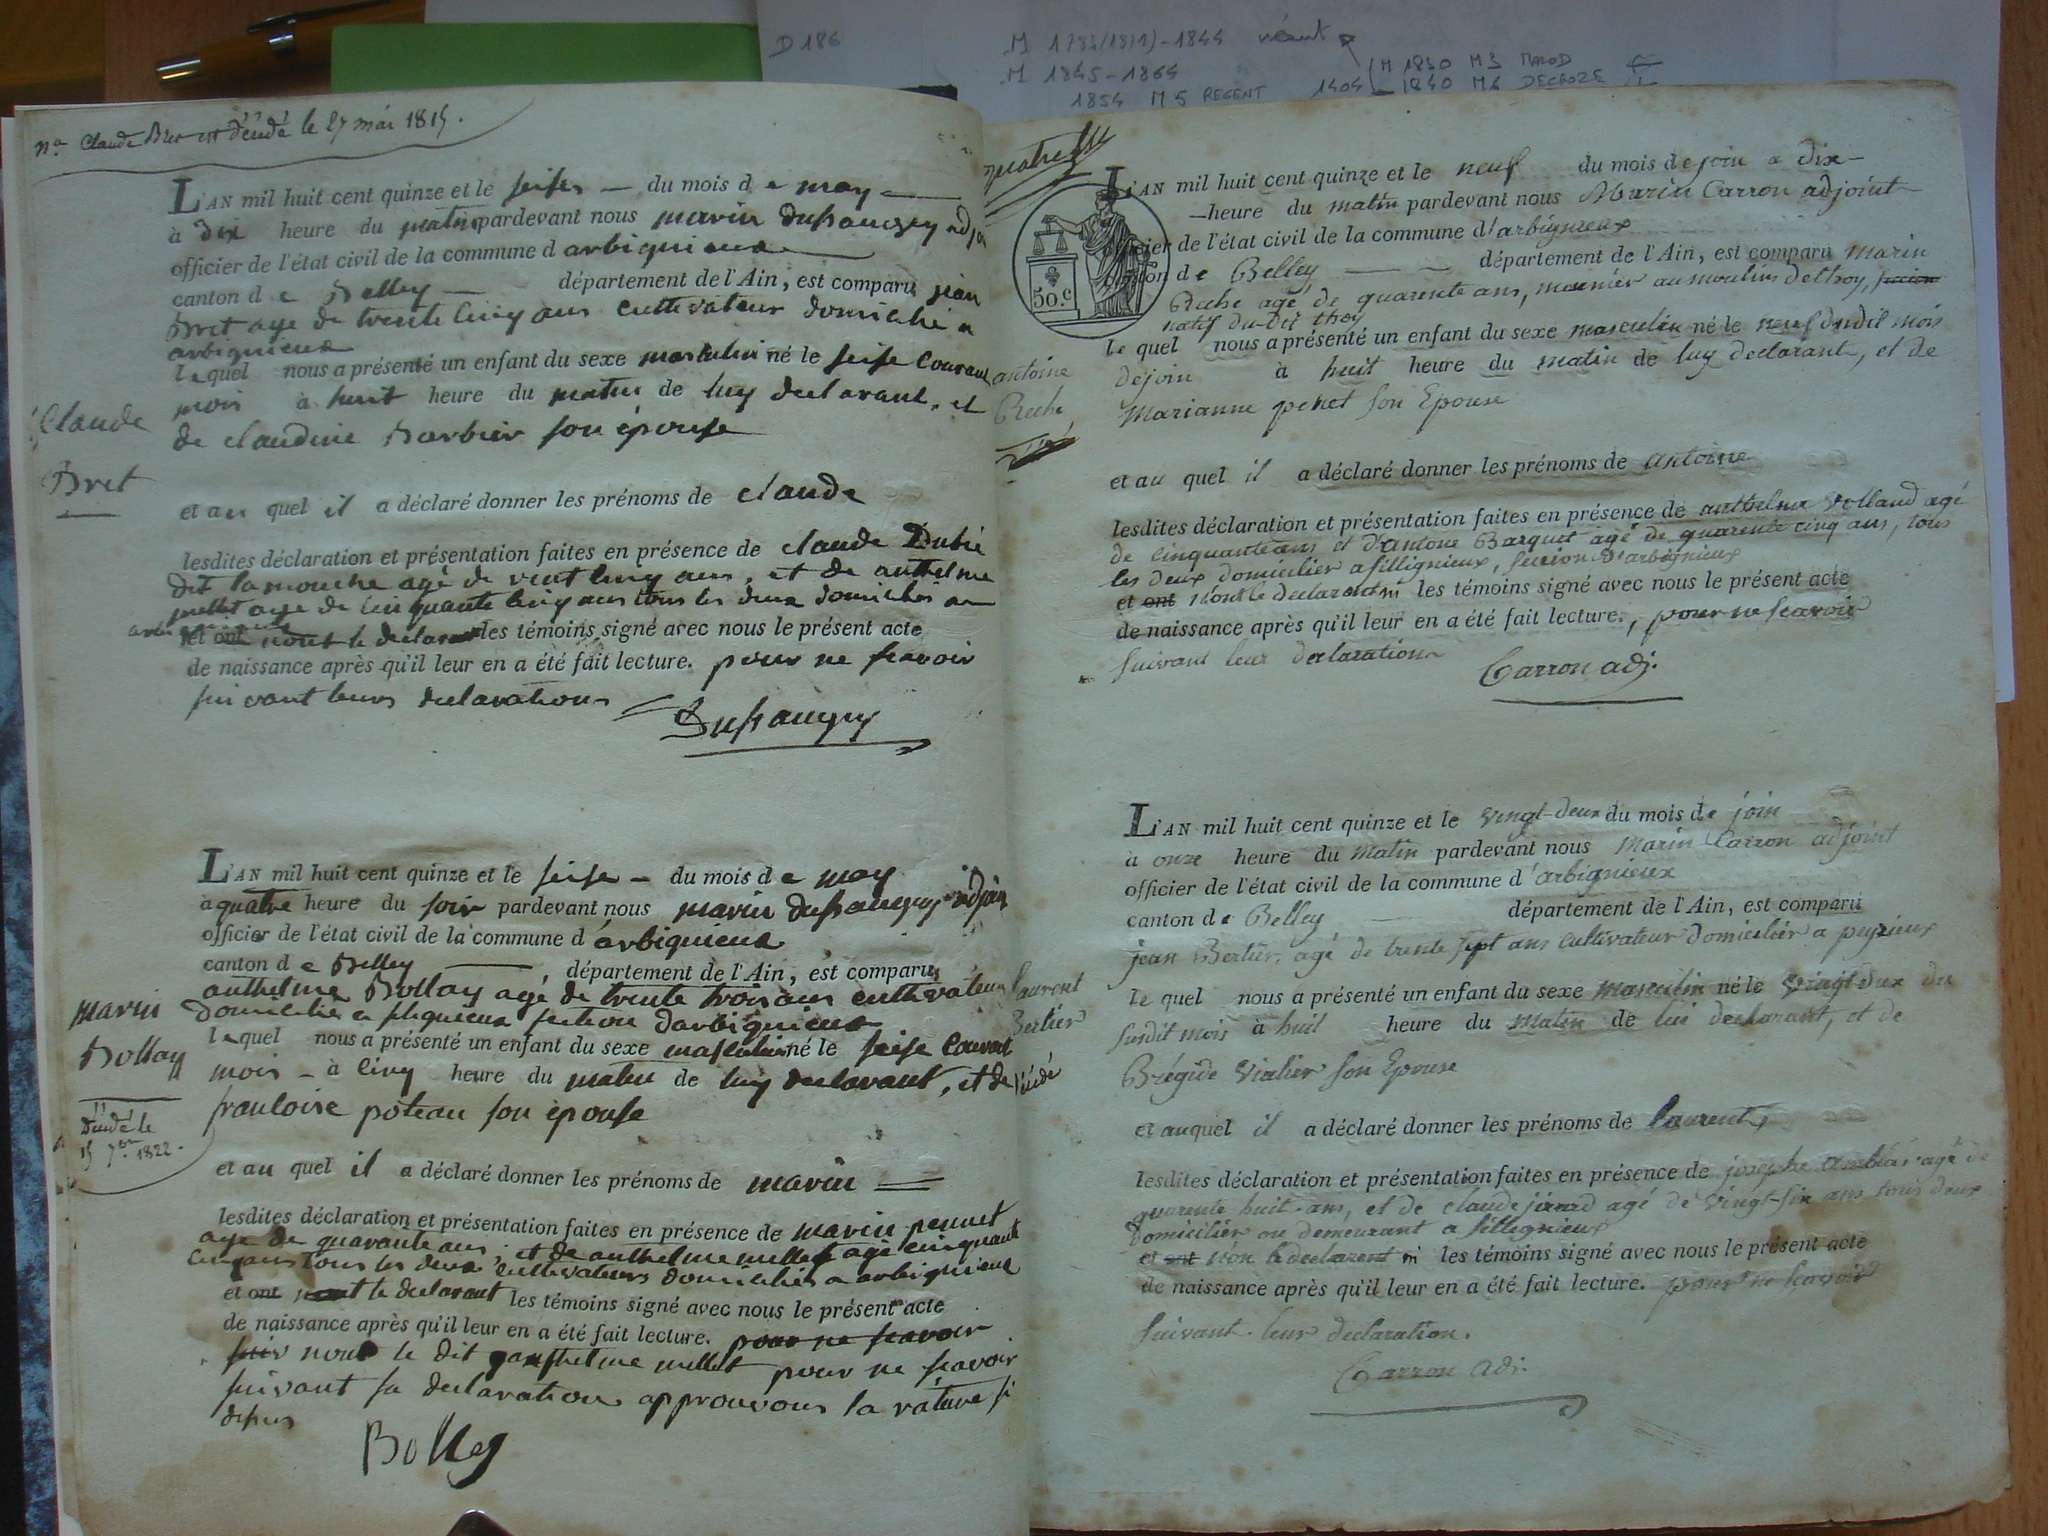 D 186
M 1793(1811)-1844 néant
M 1845-1864
1854 M 5 REGENT
M 1830 M 3
1840 M 6 DECROZE
na Claude Bret est décédé le 27 mai 1815.
L'AN mil huit cent quinze et le seise du mois de may
à dix heure du matin pardevant nous marin dussaugey adjoi
officier de l'état civil de la commune d arbignieux
canton de Belley département de l'Ain, est comparu jean
Bret age de trente cinq ans cultivateur domicilié a
arbignieux
lequel nous a présenté un enfant du sexe masculin né le seise courant
mois à huit heure du matin de luy declarant, et
de claudine Barbier son épouse
Claude
Bret
et au quel il a déclaré donner les prénoms de claude
lesdites déclaration et présentation faites en présence de claude Dubié
dit la mouche agé de vint cinq ans, et de anthelme
mellet age de cinquante cinq ans tous les deux domicilies a
arbignieux
et ont nont le declarant les témoins signé avec nous le présent acte
de naissance après qu'il leur en a été fait lecture. pour ne scavoir
suivant leurs declarations
Dussaugey
L'AN mil huit cent quinze et le seise du mois de may
a quatre heure du soir pardevant nous marin dussaugey adjoin
officier de l'état civil de la commune d arbignieux
canton de Belley département de l'Ain, est comparu
anthelme Bollay agé de trente trois ans cultivateur
domicilié a sillignieux section darbignieux
lequel nous a présenté un enfant du sexe masculin né le seise courant
mois à cinq heure du matin de luy declarant, et de
francoise poteau son épouse
marin
Bollay
Décédé le
15 7bre 1822.
et au quel il a déclaré donner les prénoms de marin
lesdites déclaration et présentation faites en présence de marin pennet
age de quarante ans, et de anthelme mellet agé cinquante
cinq ans tous les deux cultivateurs domicilies a arbignieux
et ont nont le declarant les témoins signé avec nous le présent acte
de naissance après qu'il leur en a été fait lecture. pour ne scavoir
suiv nont le dit anthelme mellet pour ne scavoir
suivant sa declaration approuvons la rature si
dessus
Bolley
L'AN mil huit cent quinze et le neuf du mois de join a dix
heure du matin pardevant nous Marin Carron adjoint
officier de l'état civil de la commune d'arbignieux
50.c
canton de Belley département de l'Ain, est comparu marin
Reche agé de quarente ans, meunier au moulin de thoy,
natif du dit thoy
le quel nous a présenté un enfant du sexe masculin né le neuf dudit mois
de join à huit heure du matin de luy declarant, et de
Marianne penet son Epouse
antoine
Reche
et au quel il a déclaré donner les prénoms de antoine
lesdites déclaration et présentation faites en présence de anthelme Volland agé
de cinquante ans et d'antone Barquet agé de quarente cinq ans, tous
les deux domicilier a sillignieux, section d'arbignieux
et ont n'ont le declarant ni les témoins signé avec nous le présent acte
de naissance après qu'il leur en a été fait lecture., pour ne scavoir
suivant leur declaration
Carron adj.
L'AN mil huit cent quinze et le vingt-deux du mois de join
à onze heure du matin pardevant nous Marin Carron adjoint
officier de l'état civil de la commune d'arbignieux
canton de Belley département de l'Ain, est comparu
jean Bertier, agé de trente sept ans cultivateur domicilier a peyzieux
le quel nous a présenté un enfant du sexe masculin né le vingt deux du
susdit mois à huit heure du matin de lui declarant, et de
Brégide Vialier son Epouse
laurent
Bertier
décédé
et auquel il a déclaré donner les prénoms de laurent,
lesdites déclaration et présentation faites en présence de josephe amblar agé de
quarente huit ans, et de claude jirard agé de vingt-six ans tous deux
domicilier ou demeurant a sillignieux
et ont n'on le declarent ni les témoins signé avec nous le présent acte
de naissance après qu'il leur en a été fait lecture. pour ne scavoir
suivant leur declaration.
Carron adj.